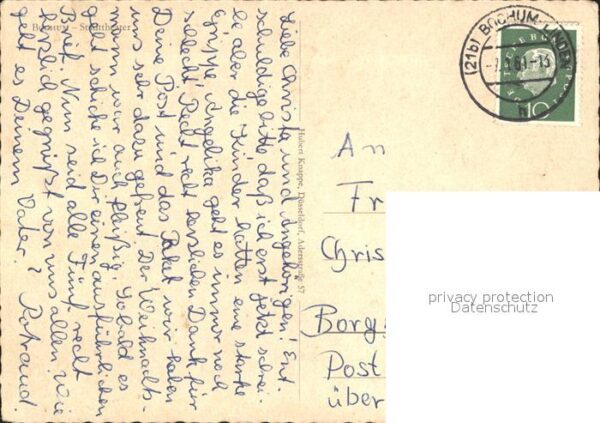 Bochum - Stadttheater
Liebe Christa und Angehörigen! Ent-
schuldige bitte daß ich erst jetzt schrei-
be aber die Kinder hatten eine starke
Grippe Angelika geht es immer noch
schlecht. Recht recht herzlichen Dank für
Deine Post und das Paket wir haben
uns sehr dazu gefreut. Der Weihnachts-
mann war auch fleißig. Sobald es
geht schicke ich Dir einen ausführlichen
Brief. Nun seid alle Fünf recht
herzlich gegrüßt von uns allen. Wie
geht es Deinem Vater? Rotraud.
Hubert Knappe, Düsseldorf, Adersstraße 57
(21b) BOCHUM-LINDEN
61-13
h
10
An
Fr
Chris
Borg
Post
über
privacy protection
Datenschutz